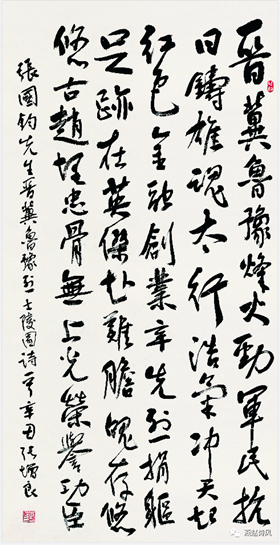 晉冀魯豫烽火勁軍民抗
日鑄雄魂太行浩氣冲天起
紅色金融創業辛先烈捐軀
足跡在英傑赴難膽魄存悠
悠古趙埋忠骨無上光榮譽功臣
張國鈞先生晉冀魯豫烈士陵園詩一首辛丑張增良
燕赵诗风